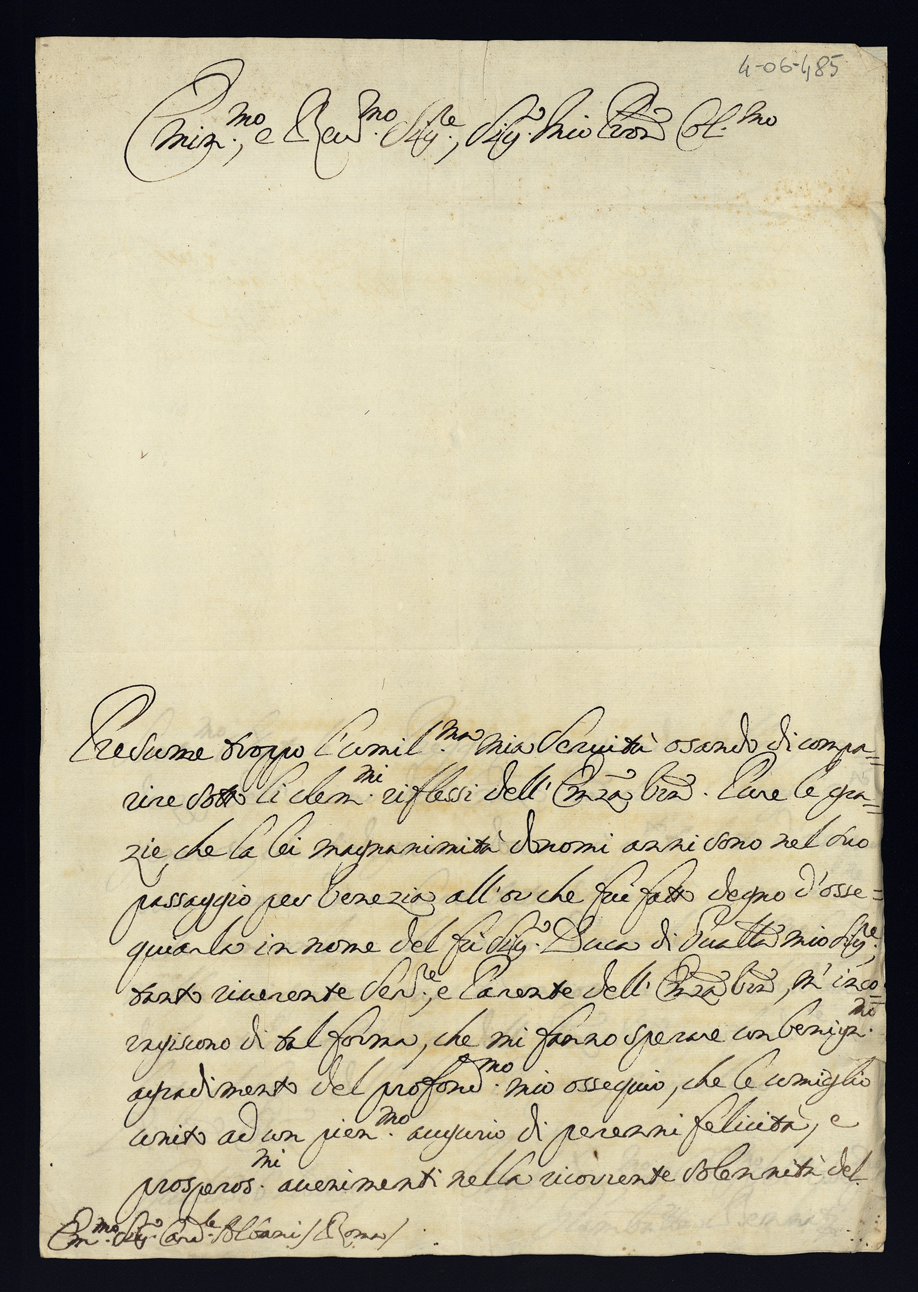 4-06-485
Emin.mo, e Reu.mo Sig.re, Sig.r mio Pron Col.mo
Presume troppo l'umil.ma mia Seruitù osando di compa=
rire sotto li clem.mi riflessi dell' Emza Vra. Pure le gra=
zie, che la lei magnanimità donomi anni sono nel suo
passaggio per Venezia all'or che fui fatto degno d'osse=
quiarla in nome del fù Sig.r Duca di Guastla mio Sig.re,
tanto riuerente Ser.re, e Parente dell' Emza Vra, m' inco=
ragiscono di tal forma, che mi fanno sperare un benign.mo
agradimento del profond.mo mio ossequio, che le umiglio
unito ad un pien.mo augurio di perenni felicità, e
prosperos.mi auenimenti nella ricorrente solennità del
Em.mo Sig.r Card.le Albani /Roma/